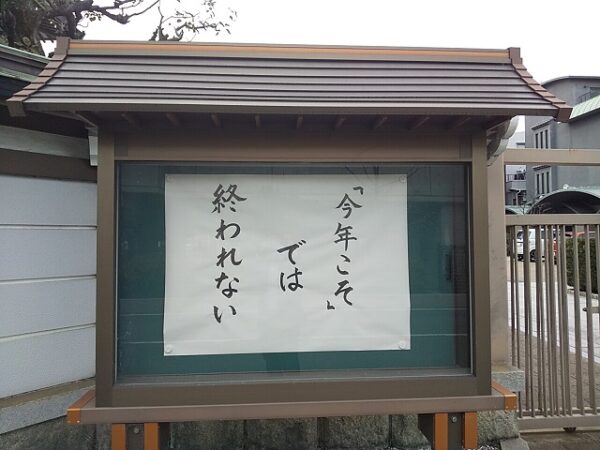 「今年こそ」
では
終われない